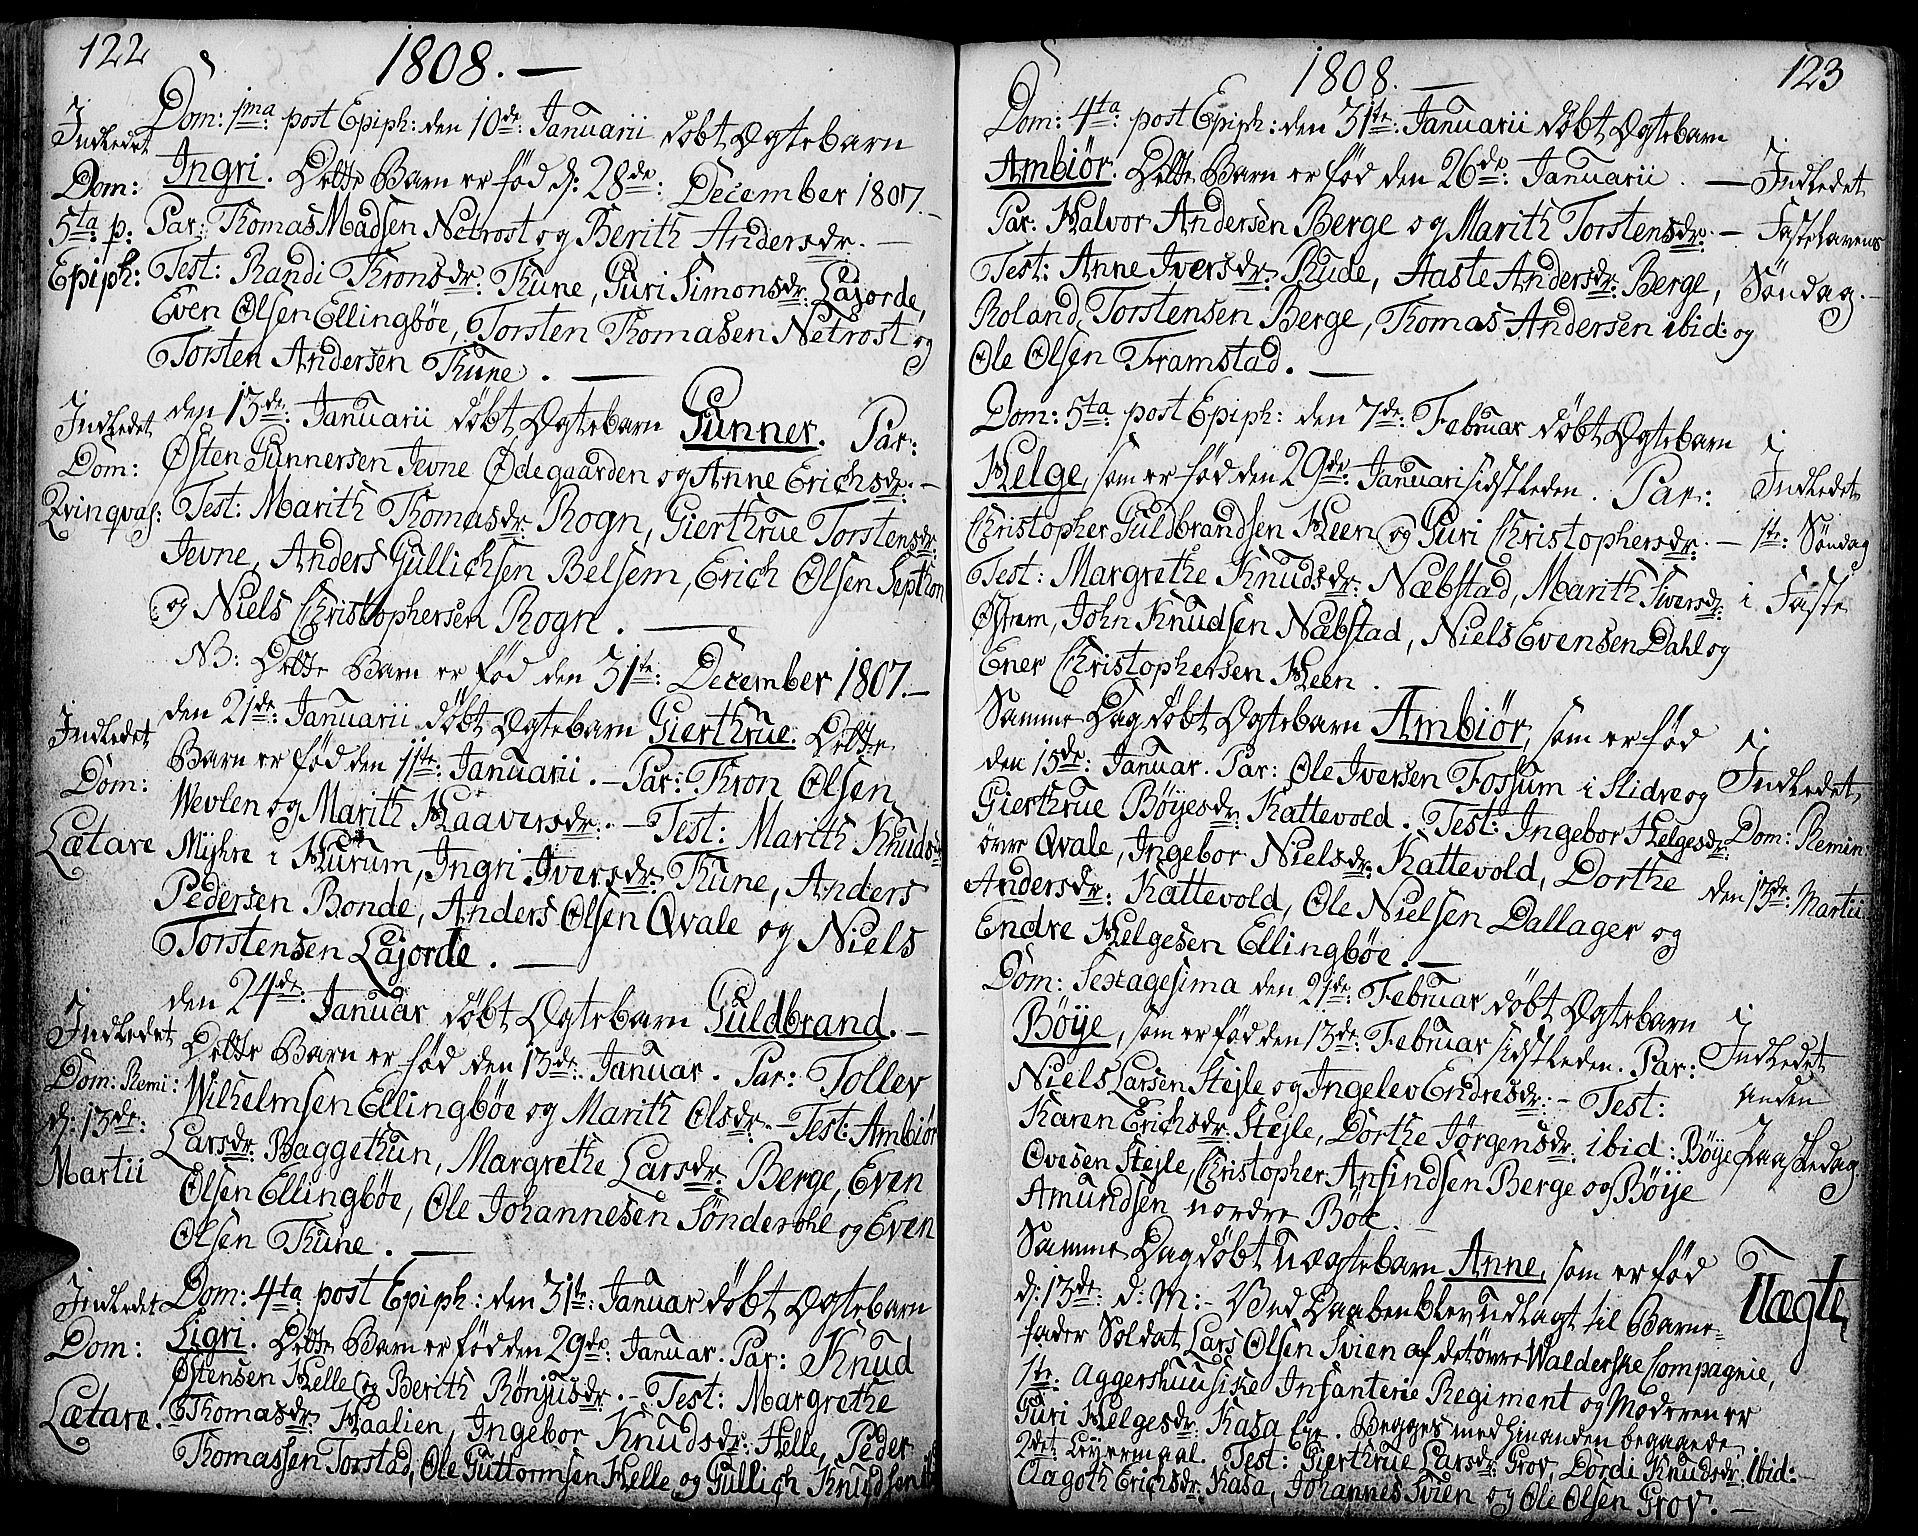 122
1808. —
Indledet
Dom:
5ta: p:
Epiph:
Dom: 1ma: post Epiph: den 10de: Januarii døbt Ægtebarn
Ingri. Dette Barn er fød d: 28de: December 1807. –
Par: Thomas Madsen Netrost og Berith Andersdr. —
Test: Randi Thronsdr: Thune, Guri Simonsdr: Lajorde,
Even Olsen Ellingbøe, Torsten Thomasen Netrost og
Torsten Andersen Thune. —
Indledet
Dom:
Qvinqvag:
den 13de: Januarii døbt Ægtebarn Gunner. Par:
Østen Gunnersen Jevne Ødegaarden og Anne Erichsdr. –
Test: Marith Thomasdr: Rogn, Gierthrue Torstensdr:
Jevne, Anders Gullichsen Belsem, Erich Olsen Septhon
og Niels Christophersen Rogn. —
NB: Dette Barn er fød den 31te: December 1807. –
Indledet
Dom:
Lætare
den 21de: Januarii døbt Ægtebarn Gierthrue. Dette
Barn er fød den 11te: Januarii. – Par: Thron Olsen
Wevlen og Marith Haaversdr. – Test: Marith Knudsdr:
Myhre i Hurum, Ingri Iversdr: Thune, Anders
Pedersen Bonde, Anders Olsen Qvale og Niels
Torstensen Lajorde. —
Indledet
Dom: Remi:
d: 13de:
Martii
den 24de: Januar døbt Ægtebarn Guldbrand. –
Dette Barn er fød den 13de: Januar. Par: Tollev
Wilhelmsen Ellingbøe og Marith Olsdr. – Test: Ambiør
Larsdr: Baggethun, Margrethe Larsdr: Berge, Even
Olsen Ellingbøe, Ole Johannesen Sønderohl og Even
Olsen Thune. —
Indledet
Dom:
Lætare.
Dom: 4ta post Epiph: den 31te: Januar døbt Ægtebarn
Sigri. Dette Barn er fød den 29de: Januar. Par: Knud
Østensen Helle og Berith Rønjusdr. – Test: Margrethe
Thomasdr: Haalien, Ingebor Knudsdr: Helle, Peder
Thomassen Torstad, Ole Guttormsen Helle og Gullich Knudsen ib
123
1808. —
Dom: 4ta: post Epiph: den 31te: Januarii døbt Ægtebarn
Ambiør. Dette Barn er fød den 26de: Januarii. —
Par: Halvor Andersen Berge og Marith Torstensdr: –
Test: Anne Iversdr: Rude, Aaste Andersdr: Berge,
Roland Torstensen Berge, Thomas Andersen ibid: og
Ole Olsen Framstad. —
Indledet
Fastelavens
Søndag. –
Dom: 5ta post Epiph: den 7de: Februar døbt Ægtebarn
Helge, som er fød den 29de: Januari sidstleden. Par:
Christopher Guldbrandsen Heen og Guri Christophersdr. –
Test: Margrethe Knudsdr: Næbstad, Marith Iversdr:
Østrem, John Knudsen Næbstad, Niels Evensen Dahl og
Ener Christophersen Heen.
Indledet
1te: Søndag
i Faste
Samme Dag døbt Ægtebarn Ambiør, som er fød
den 15de: Januar. Par: Ole Iversen Fossum i Slidre og
Gierthrue Bøyesdr: Kattevold. Test: Ingebor Helgesdr:
øvre Qvale, Ingebor Nielsdr: Kattevold, Dorthe
Andersdr: Kattevold, Ole Nielsen Dallager og
Endre Helgesen Ellingbøe. —
Indledet
Dom: Remin:
den 13de: Martii
Dom: Sexagesima den 21de: Februar døbt Ægtebarn
Bøye, som er fød den 13de: Februar sidstleden. Par:
Niels Larsen Stejle og Ingelev Endresdr: – Test:
Karen Erichsdr: Stejle, Dorthe Jørgensdr: ibid: Bøye
Ovesen Stejle, Christopher Ansindsen Berge og Bøye
Amundsen nordre Böe. —
Indledet
anden
Paaskedag
Samme Dag døbt Uægtebarn Anne, som er fød
d: 13de: d: M: – Ved Daaben blev udlagt til Barne-
fader Soldat Lars Olsen Svien af det øvre Walderske Compagnie,
1te: Aggershuusiske Infanterie Regiment og Moderen er
Guri Helgesdr: Kasa Eje. Begges med hinanden begaaede
2det Leyermaal. Test: Gierthrue Larsdr: Grov, Dordi Knudsdr: ibid: –
Aagoth Erichsdr: Kasa, Johannes Svien og Ole Olsen Grov. —
Uægte